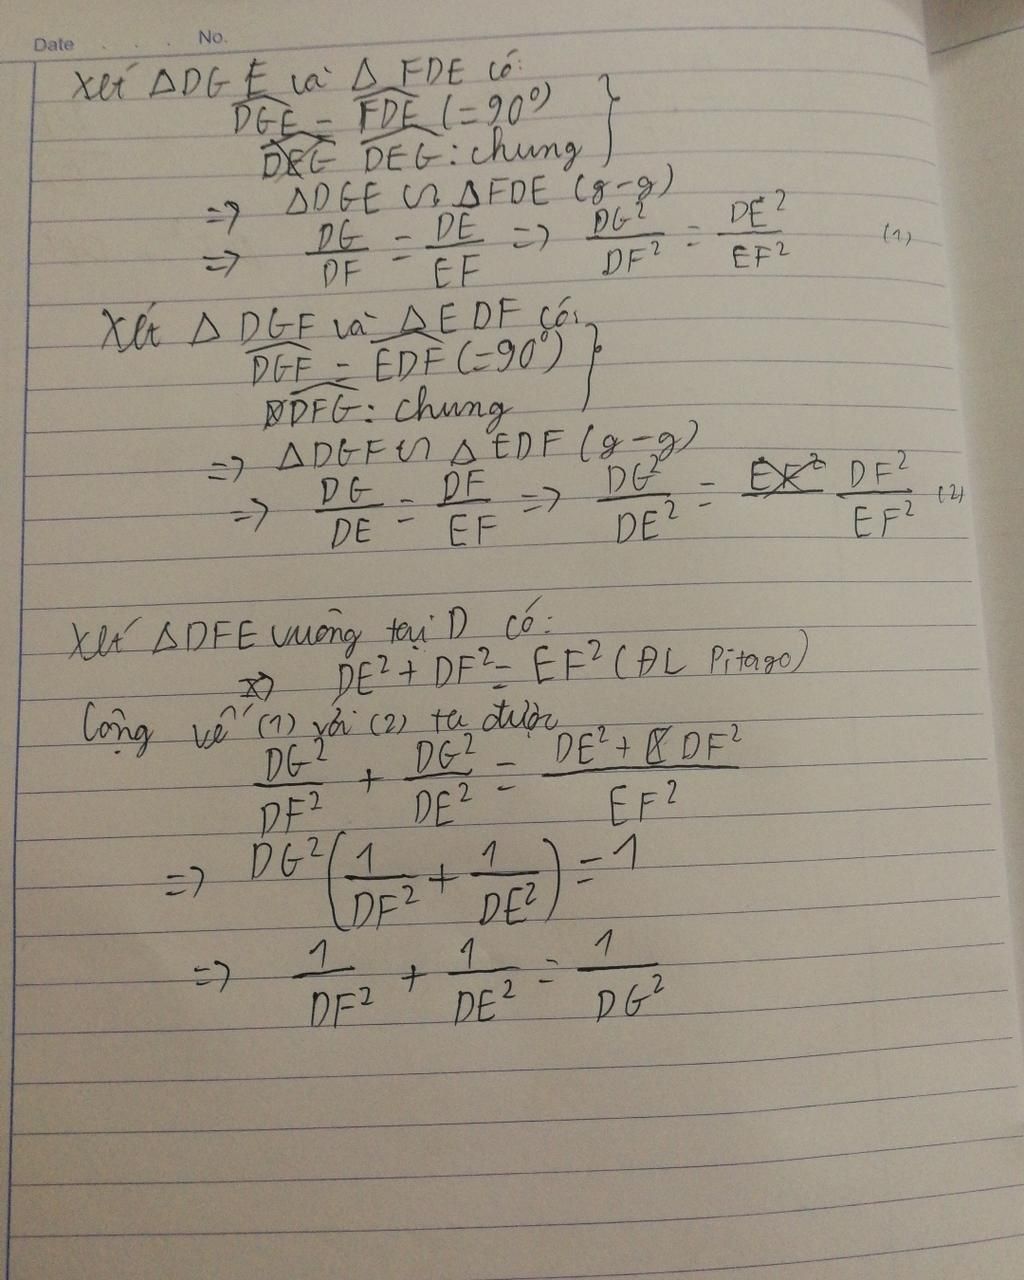 Date . . . No.
Xét ΔDGE và Δ FDE có:
DGE = FDE (=90°)
DEG DEG: chung
=> ΔDGE ∽ ΔFDE (g-g)
=> DG/DF = DE/EF => DG²/DF² = DE²/EF² (1)
Xét Δ DGF và ΔEDF có:
DGF = EDF (=90°)
DFG: chung
=> ΔDGF ∽ Δ EDF (g-g)
=> DG/DE = DF/EF => DG²/DE² = DF²/EF² (2)
Xét ΔDFE vuông tại D có:
=> DE² + DF² = EF² (ĐL Pitago)
Cộng vế (1) với (2) ta được
DG²/DF² + DG²/DE² = (DE² + DF²)/EF²
=> DG²(1/DF² + 1/DE²) = 1
=> 1/DF² + 1/DE² = 1/DG²